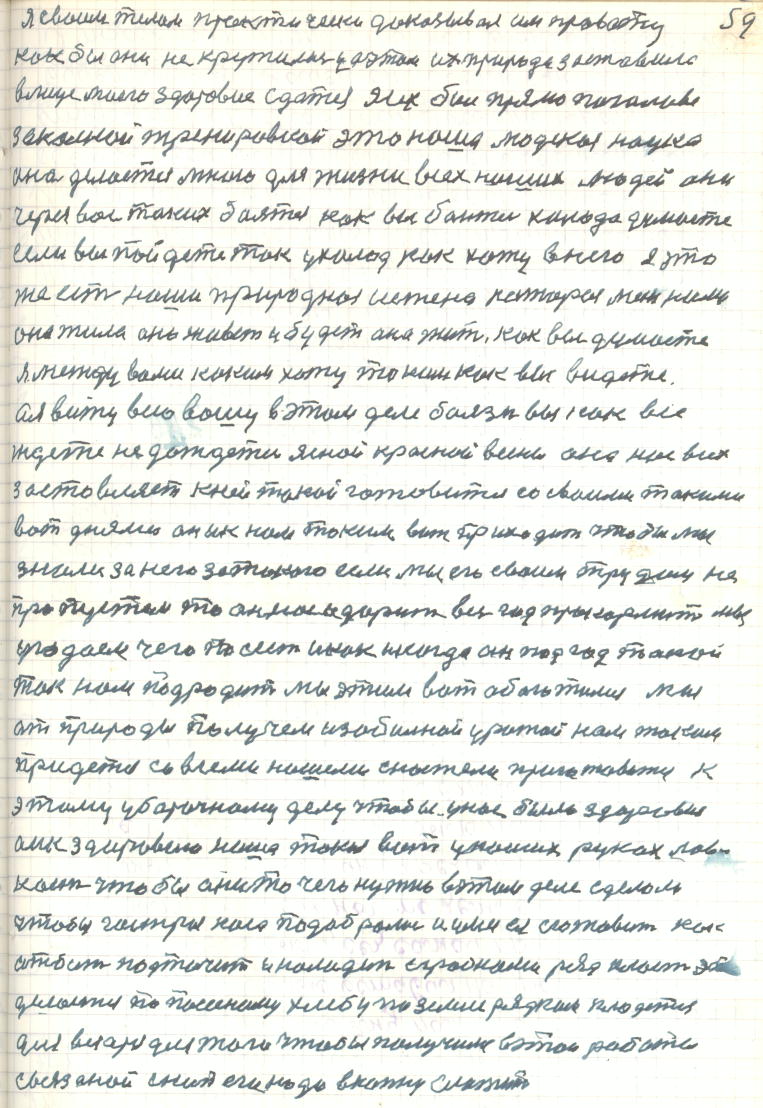 59
я своим телом практически доказывал им правоту
как бы они не крутилися этом их природа заставила
влице моего здоровие сдатся я их бил прямо паголове
закалкой тренировкой это наша людская наука
она делается много для жизни всех наших людей они
через вас таких боятся как вы
если вы пойдете так ухолод как хожу внего я это
же ест наша природная истена которая меж нами
она жила она живет и будит она жит. как вы думаете
я между вами каким хожу таким как вы видете.
а я вижу всю вашу вэтом деле боязн вы как все
ждете не дождетис ясной красной весны она нас всех
заставляет кней такой готовится со своими такими
вот днями он к нам таким вот приходит чтобы мы
знали за него затакого если мы его своим трудом не
пропустем то он нас одарит вес год прокормит мы
угадаем чего посеит инак когда он под год такой
так нам подродит мы этим вот обагатимся мы
от природы получем изабилной урожай нам таким
придется со всеми нашеми снастеми приготовится к
этому уборочному делу чтобы унас было здоровия
а ик здоровию наша такая вот унаших руках лов-
кост чтобы они то чего нужно вэтом деле сделали
чтобы гострая каса подобрали и ими ея состовит как
отбит подточит и наладит спрабками ряд класт эта
делается по посеяному хлебу по земле рядком кладется
для вязаря для того чтобы получит вэтой работе
связаной сноп его надо вкопну сложит